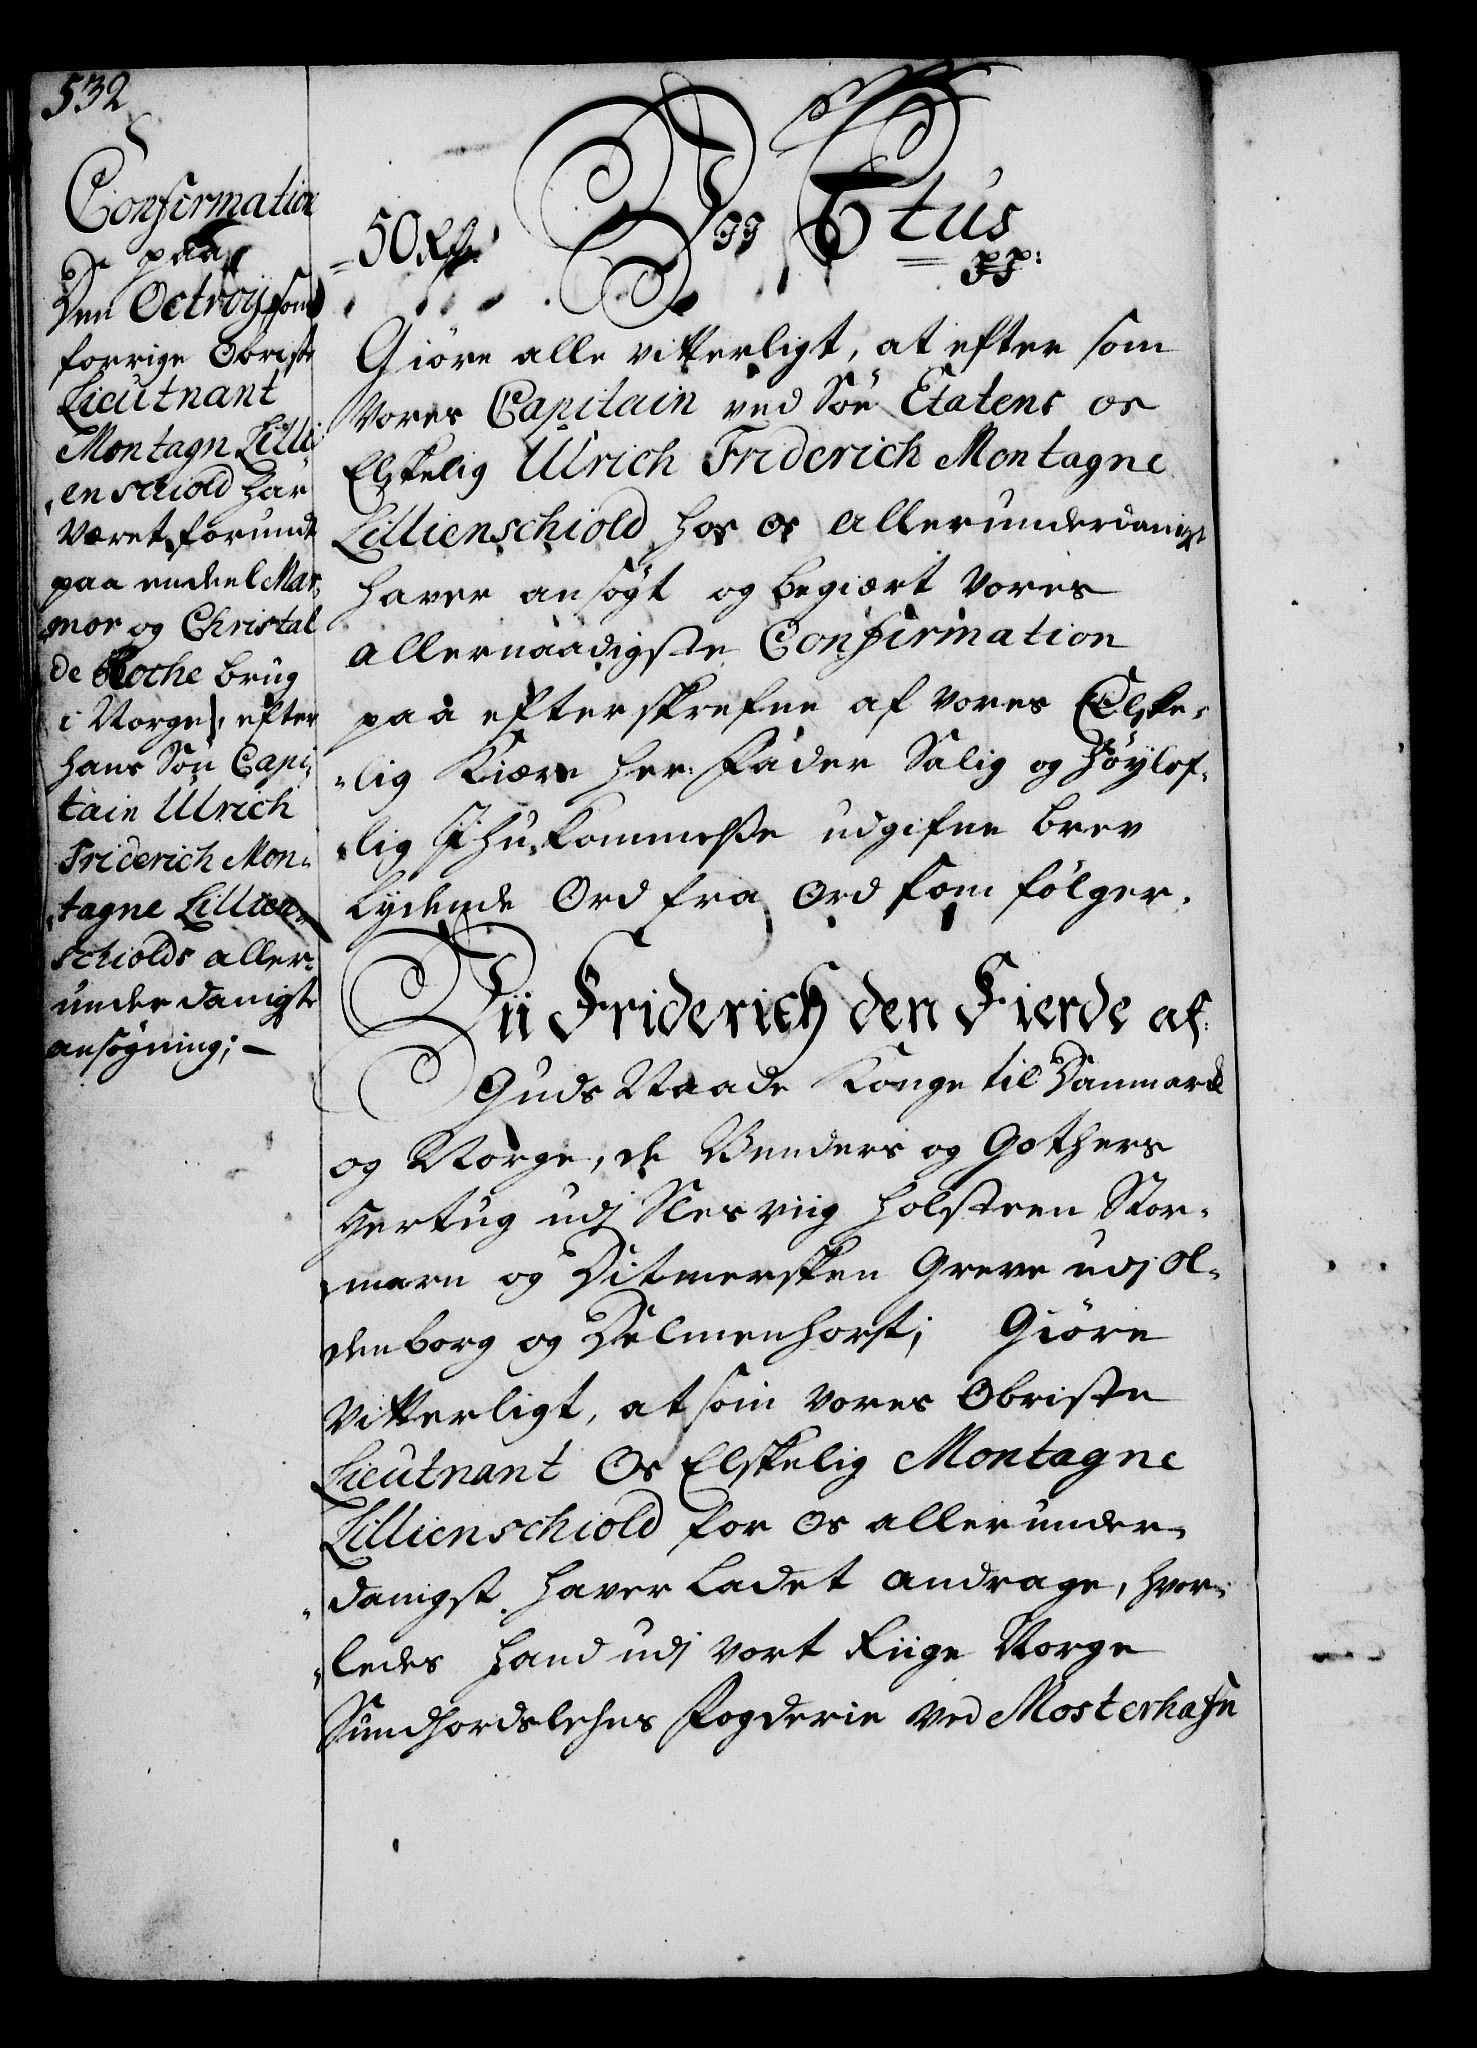 532
Confirmation
paa
Den Octroij som
forrige Obriste
Lieutnant
Montagn Lilli
enschiold har
været forundt
paa endeel Mar,
mor og Christal
de Roche brug
i Norge, efter
hans Søn Capi,
tain Ulrich
Friderich Mon=
tagne Lillien=
schiolds aller=
underdanigste
ansøgning; —
50 Rdr.
C 6tus
pp:
Giøre alle vitterligt, at efter som
Vores Capitain ved Søe Etatens os
Elskelig Ulrich Friderich Montagne
Lillienschiold hos os allerunderdanigst
haver ansøgt og begiært Vores
allernaadigste Confirmation
paa efterskrefne af Vores Elske=
lig Kiære Her: Fader Salig og Høylof=
lig Ihukommelse udgifne brev
lydende Ord fra Ord som følger.
Vii Friderich den Fierde af
Guds Naade Konge til Danmark
og Norge, de Venders og Gothers
Hertug udj Slesviig Holsteen Stor=
marn og Ditmersken Greve udj Ol=
denborg og Delmenhorst; Giøre
Vitterligt, at som Vores Obriste
Lieutnant Os Elskelig Montagne
Lillienschiold for Os allerunder=
danigst haver ladet andrage, hvor=
ledes hand udj Vort Riige Norge
Sundhordslehns Fogderie ved Mosterhafn